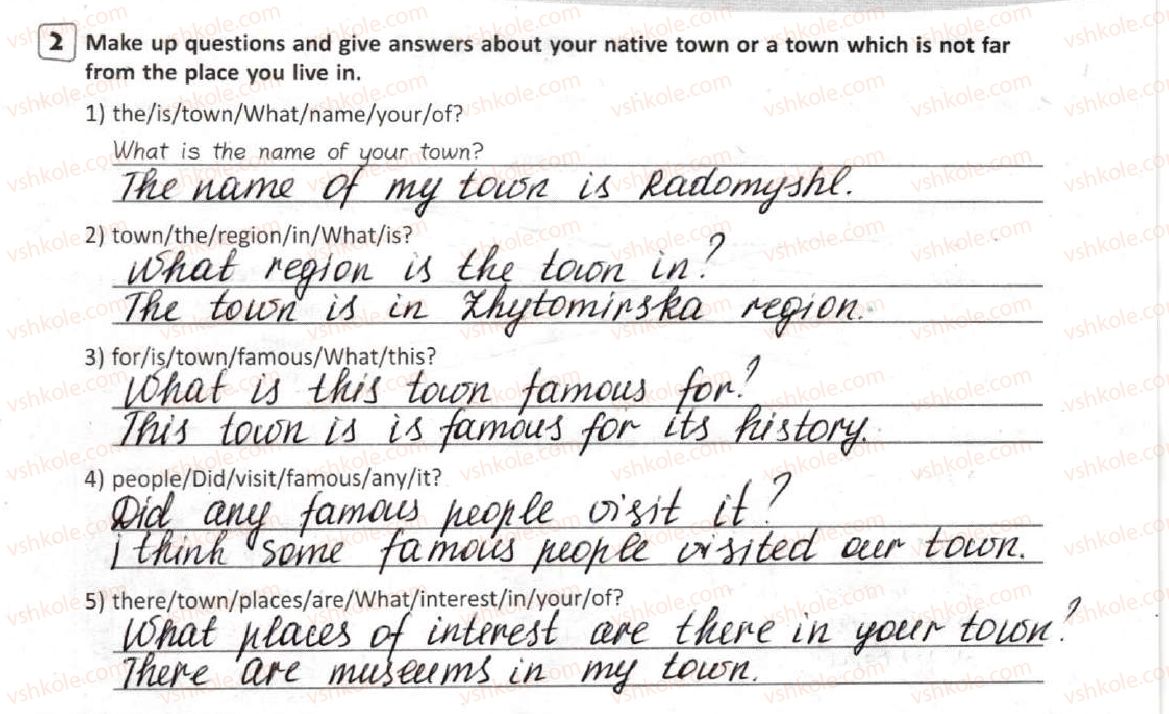 2 Make up questions and give answers about your native town or a town which is not far
from the place you live in.
1) the/is/town/What/name/your/of?
What is the name of your town?
The name of my town is Radomyshl.
2) town/the/region/in/What/is?
What region is the town in?
The town is in Zhytomirska region.
3) for/is/town/famous/What/this?
What is this town famous for?
This town is is famous for its history.
4) people/Did/visit/famous/any/it?
Did any famous people visit it?
I think some famous people visited our town.
5) there/town/places/are/What/interest/in/your/of?
What places of interest are there in your town?
There are museums in my town.
vshkole.com